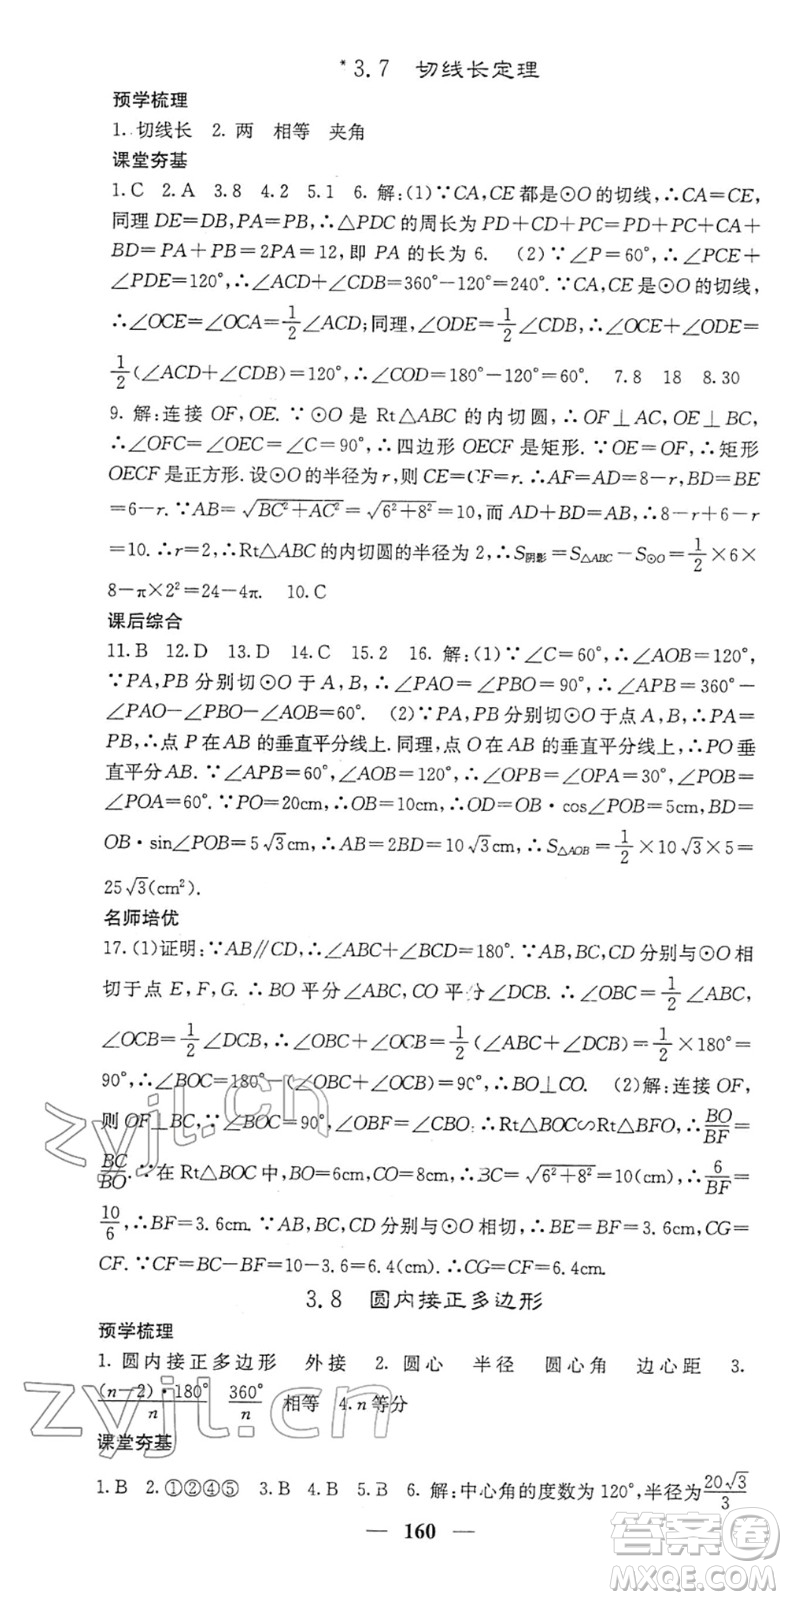 *3.7 切线长定理
预学梳理
1.切线长 2.两 相等 夹角
课堂夯基
1.C 2.A 3.8 4.2 5.1 6.解:(1)∵CA,CE都是⊙O的切线,∴CA=CE,
同理DE=DB,PA=PB,∴△PDC的周长为PD+CD+PC=PD+PC+CA+
BD=PA+PB=2PA=12,即PA的长为6. (2)∵∠P=60°,∴∠PCE+
∠PDE=120°,∴∠ACD+∠CDB=360°-120°=240°.∵CA,CE是⊙O的切线,
∴∠OCE=∠OCA=1/2∠ACD;同理,∠ODE=1/2∠CDB,∴∠OCE+∠ODE=
1/2(∠ACD+∠CDB)=120°,∴∠COD=180°-120°=60°. 7.8 18 8.30
9.解:连接OF,OE.∵⊙O是Rt△ABC的内切圆,∴OF⊥AC,OE⊥BC,
∴∠OFC=∠OEC=∠C=90°,∴四边形OECF是矩形.∵OE=OF,∴矩形
OECF是正方形.设⊙O的半径为r,则CE=CF=r.∴AF=AD=8-r,BD=BE
=6-r.∵AB=√(BC²+AC²)=√(6²+8²)=10,而AD+BD=AB,∴8-r+6-r
=10.∴r=2,∴Rt△ABC的内切圆的半径为2,∴S阴影=S△ABC-S⊙O=1/2×6×
8-π×2²=24-4π. 10.C
课后综合
11.B 12.D 13.D 14.C 15.2 16.解:(1)∵∠C=60°,∴∠AOB=120°,
∵PA,PB分别切⊙O于A,B,∴∠PAO=∠PBO=90°,∴∠APB=360°-
∠PAO-∠PBO-∠AOB=60°. (2)∵PA,PB分别切⊙O于点A,B,∴PA=
PB,∴点P在AB的垂直平分线上.同理,点O在AB的垂直平分线上,∴PO垂
直平分AB.∵∠APB=60°,∠AOB=120°,∴∠OPB=∠OPA=30°,∠POB=
∠POA=60°.∵PO=20cm,∴OB=10cm,∴OD=OB·cos∠POB=5cm,BD=
OB·sin∠POB=5√3cm;∴AB=2BD=10√3cm,∴S△AOB=1/2×10√3×5=
25√3(cm²).
名师培优
17.(1)证明:∵AB∥CD,∴∠ABC+∠BCD=180°.∵AB,BC,CD分别与⊙O相
切于点E,F,G.∴BO平分∠ABC,CO平分∠DCB.∴∠OBC=1/2∠ABC,
∠OCB=1/2∠DCB,∴∠OBC+∠OCB=1/2(∠ABC+∠DCB)=1/2×180°=
90°,∴∠BOC=180°-(∠OBC+∠OCB)=90°,∴BO⊥CO. (2)解:连接OF,
则OF⊥BC,∵∠BOC=90°,∠OBF=∠CBO∴Rt△BOC∽Rt△BFO,∴BO/BF=
BC/BO.∵在Rt△BOC中,BO=6cm,CO=8cm,∴BC=√(6²+8²)=10(cm),∴6/BF=
10/6,∴BF=3.6cm.∵AB,BC,CD分别与⊙O相切,∴BE=BF=3.6cm,CG=
CF.∵CF=BC-BF=10-3.6=6.4(cm).∴CG=CF=6.4cm.
3.8 圆内接正多边形
预学梳理
1.圆内接正多边形 外接 2.圆心 半径 圆心角 边心距 3.
(n-2)·180°/n 360°/n 相等 4.n等分
课堂夯基
1.B 2.①②④⑤ 3.B 4.B 5.B 6.解:中心角的度数为120°,半径为20√3/3
— 160 —
zyjl.cn
zyjl.cn
答案圈
MXQE.COM